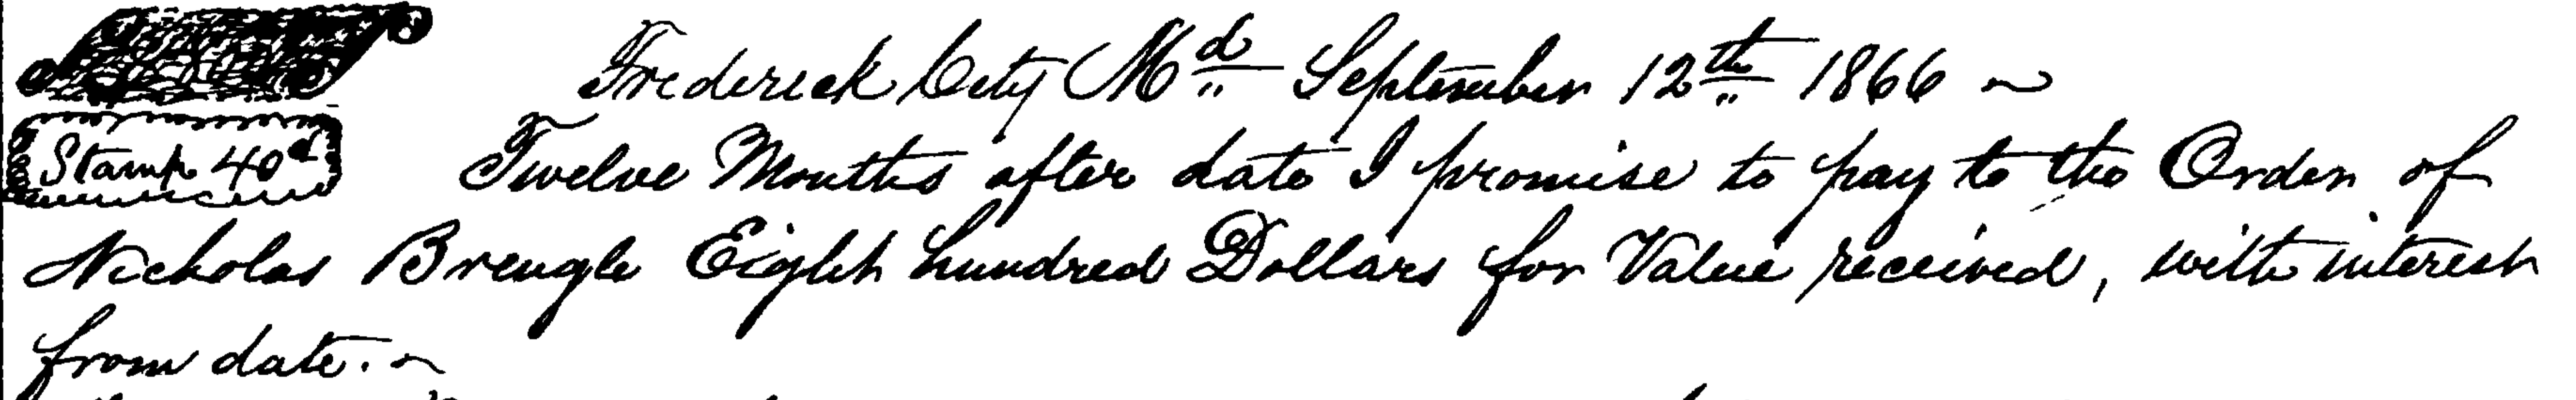 Frederick City Md September 12th 1866 ~
Stamp 40c
Twelve Months after date I promise to pay to the Order of
Nicholas Brengle Eight hundred Dollars for Value received, with interest
from date. ~